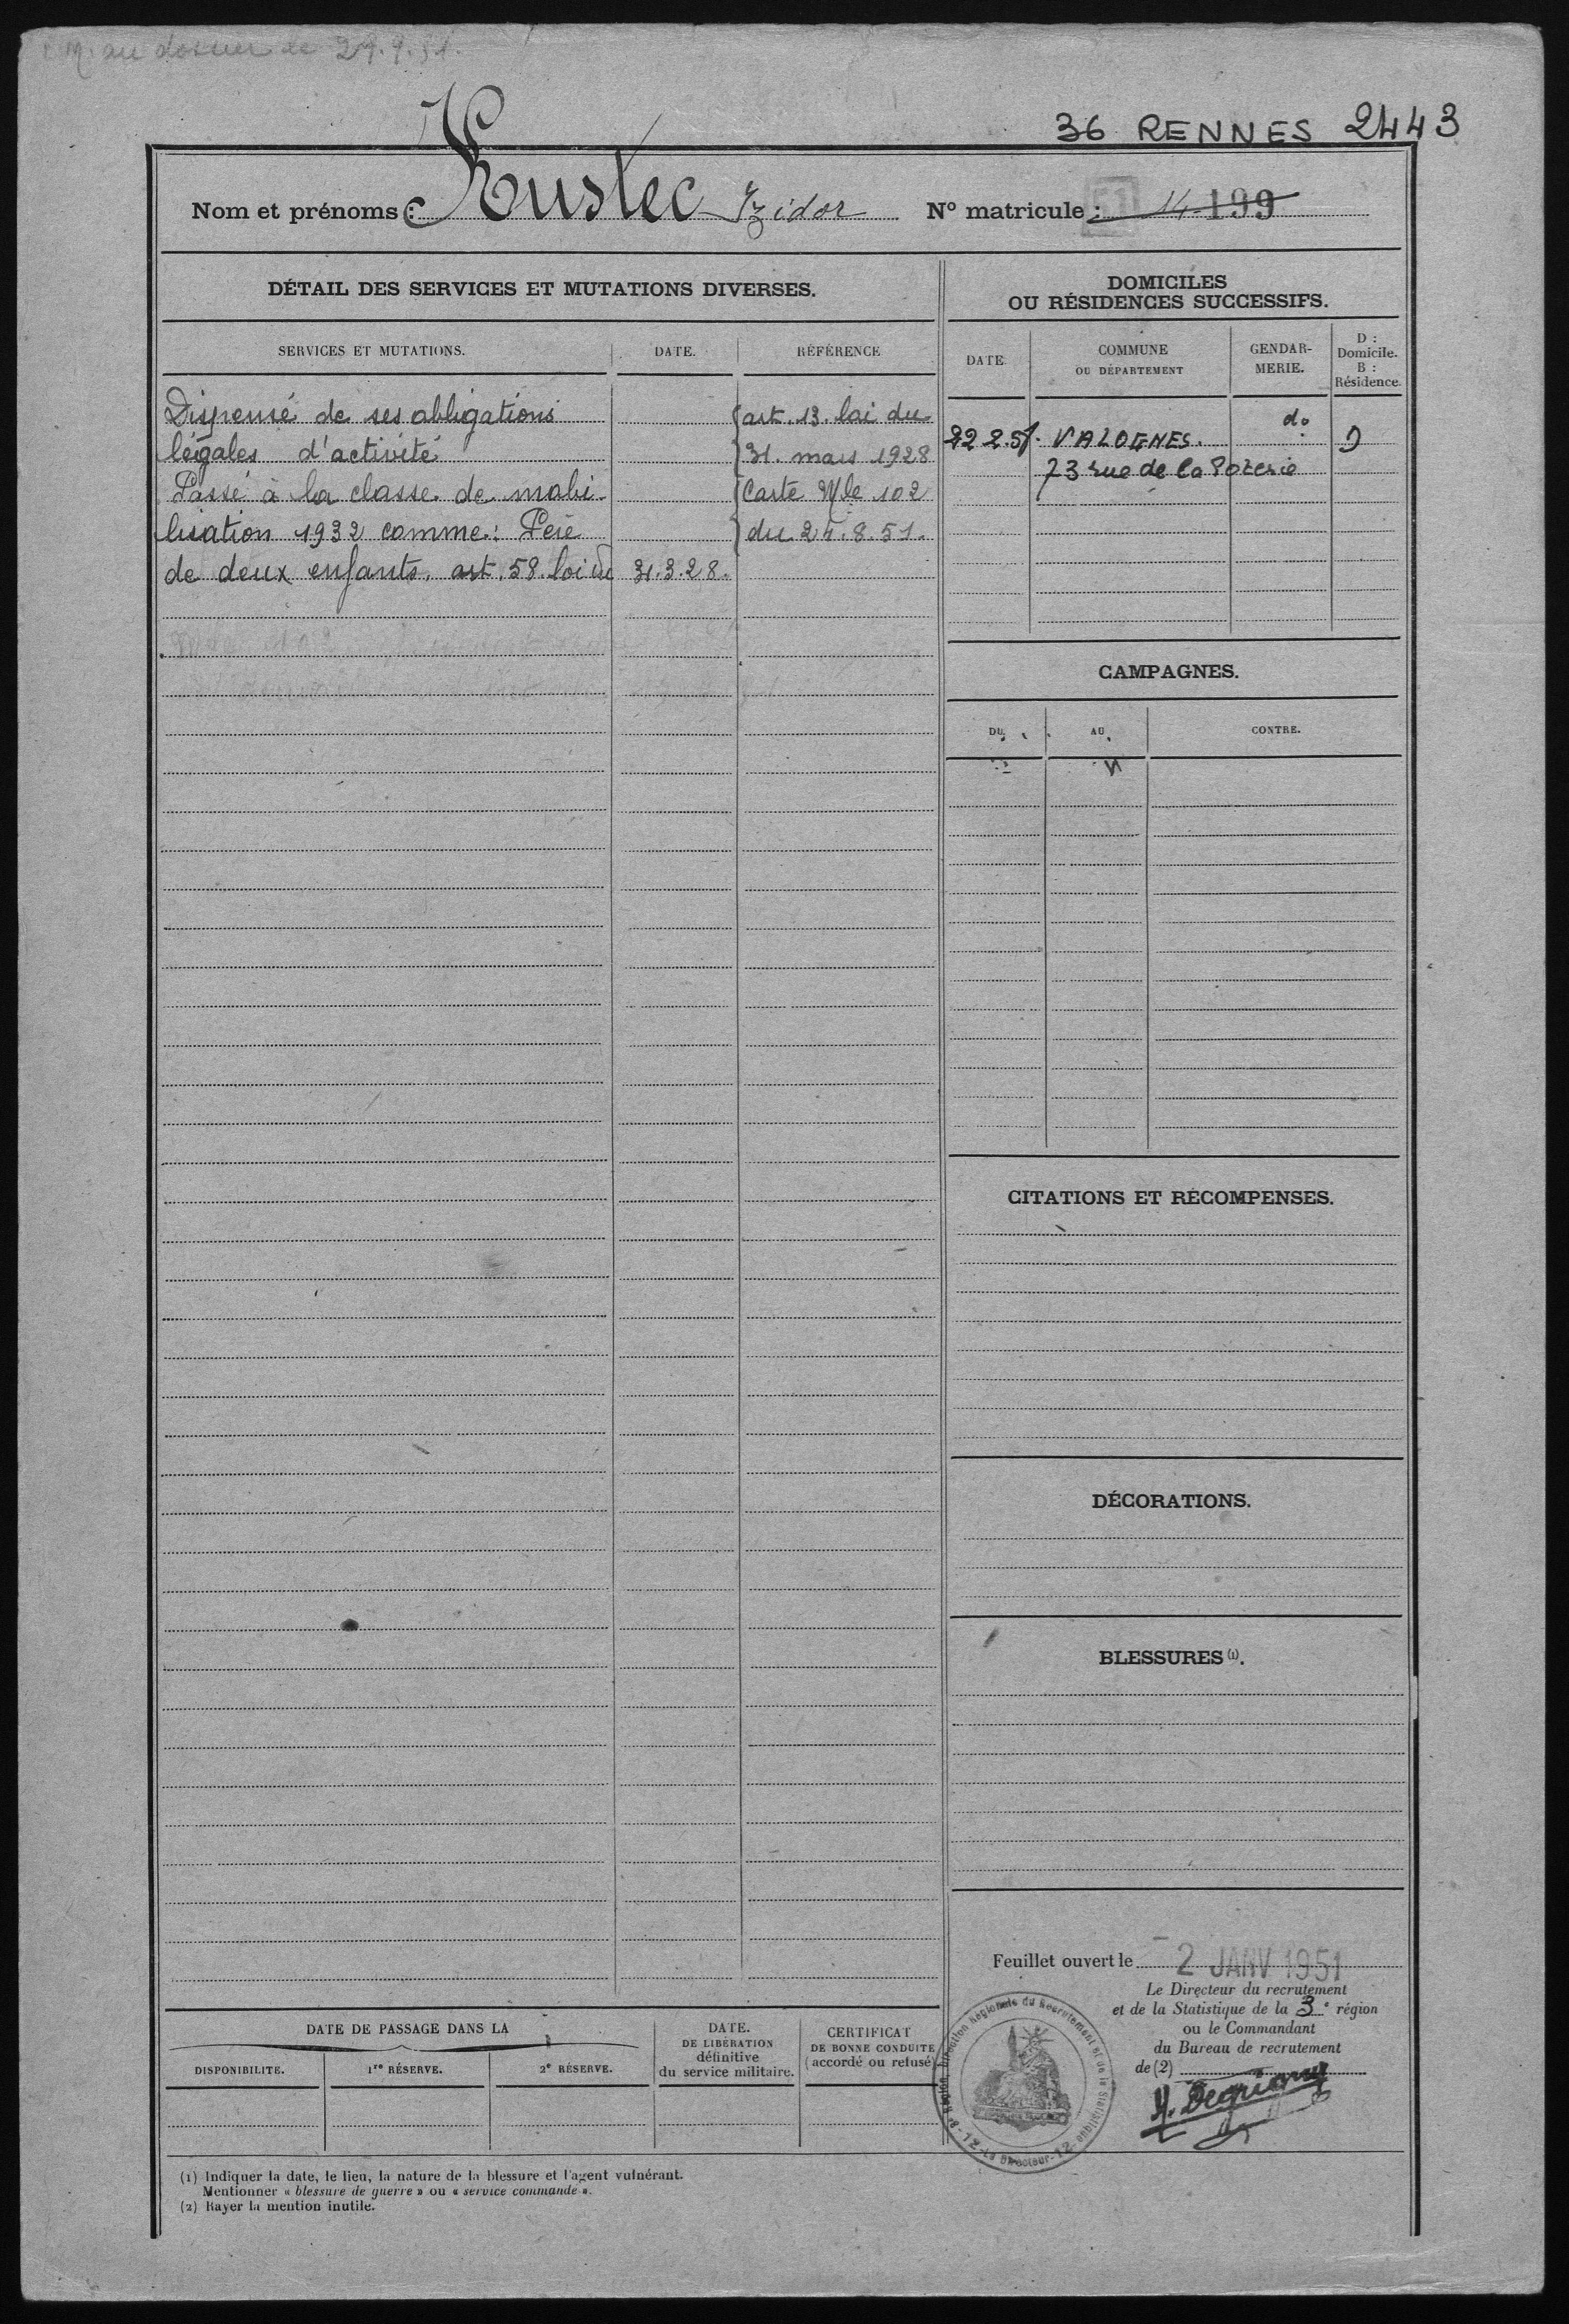 M. au dossier le 29.9.51.
36 RENNES 2443
Nom et prénoms : Kustec Izidor N° matricule : 51 14 199
DÉTAIL DES SERVICES ET MUTATIONS DIVERSES.
SERVICES ET MUTATIONS. DATE. RÉFÉRENCE
Dispensé de ses obligations art. 13. loi du
légales d'activité 31. mars 1928
Passé à la classe de mobi- Carte Mle 102
lisation 1932 comme : Père du 24.8.51.
de deux enfants. art. 58. loi du 31.3.28.
DOMICILES
OU RÉSIDENCES SUCCESSIFS.
DATE COMMUNE
OU DÉPARTEMENT
GENDAR-
MERIE.
D :
Domicile.
B :
Résidence.
22 2.51. VALOGNES. do D
73 rue de la Poterie
CAMPAGNES.
DU AU CONTRE.
CITATIONS ET RÉCOMPENSES.
DÉCORATIONS.
BLESSURES (1).
Feuillet ouvert le - 2 JANV 1951
Le Directeur du recrutement
et de la Statistique de la 3e région
ou le Commandant
du Bureau de recrutement
de (2)
Direction Régionale du Recrutement et de la Statistique - 12 - Le Directeur - 12 - 3e Région
DATE DE PASSAGE DANS LA
DISPONIBILITE. 1re RÉSERVE. 2e RÉSERVE.
DATE.
DE LIBÉRATION
définitive
du service militaire.
CERTIFICAT
DE BONNE CONDUITE
(accordé ou refusé)
(1) Indiquer la date, le lieu, la nature de la blessure et l'agent vulnérant.
Mentionner « blessure de guerre » ou « service commandé ».
(2) Rayer la mention inutile.